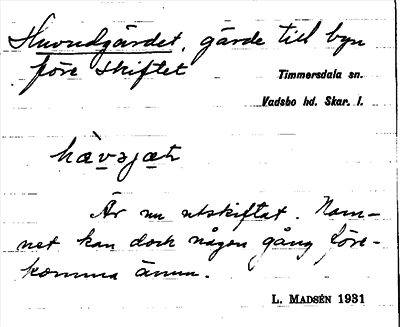 Huvudgärdet, gärde till byn
före skiftet
Timmersdala sn.
Vadsbo hd. Skar. l.
Är nu utskiftat. Nam-
net kan dock någon gång före-
komma ännu.
L. Madsén 1931